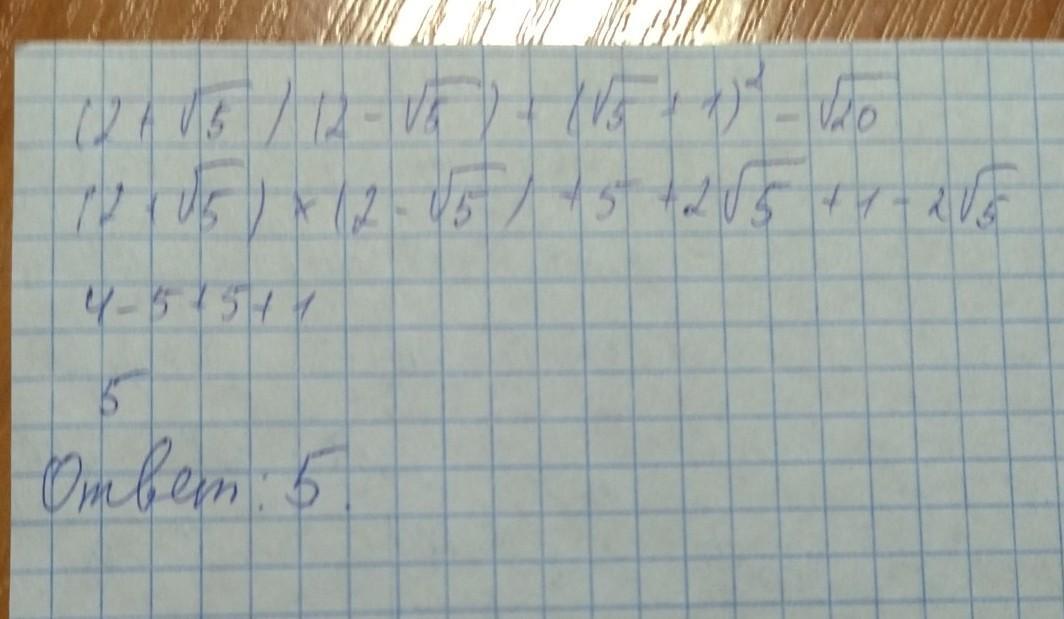 (2+√5)(2-√5)+(√5+1)²-√20
(2+√5)×(2-√5)+5+2√5+1-2√5
4-5+5+1
5
Ответ: 5.